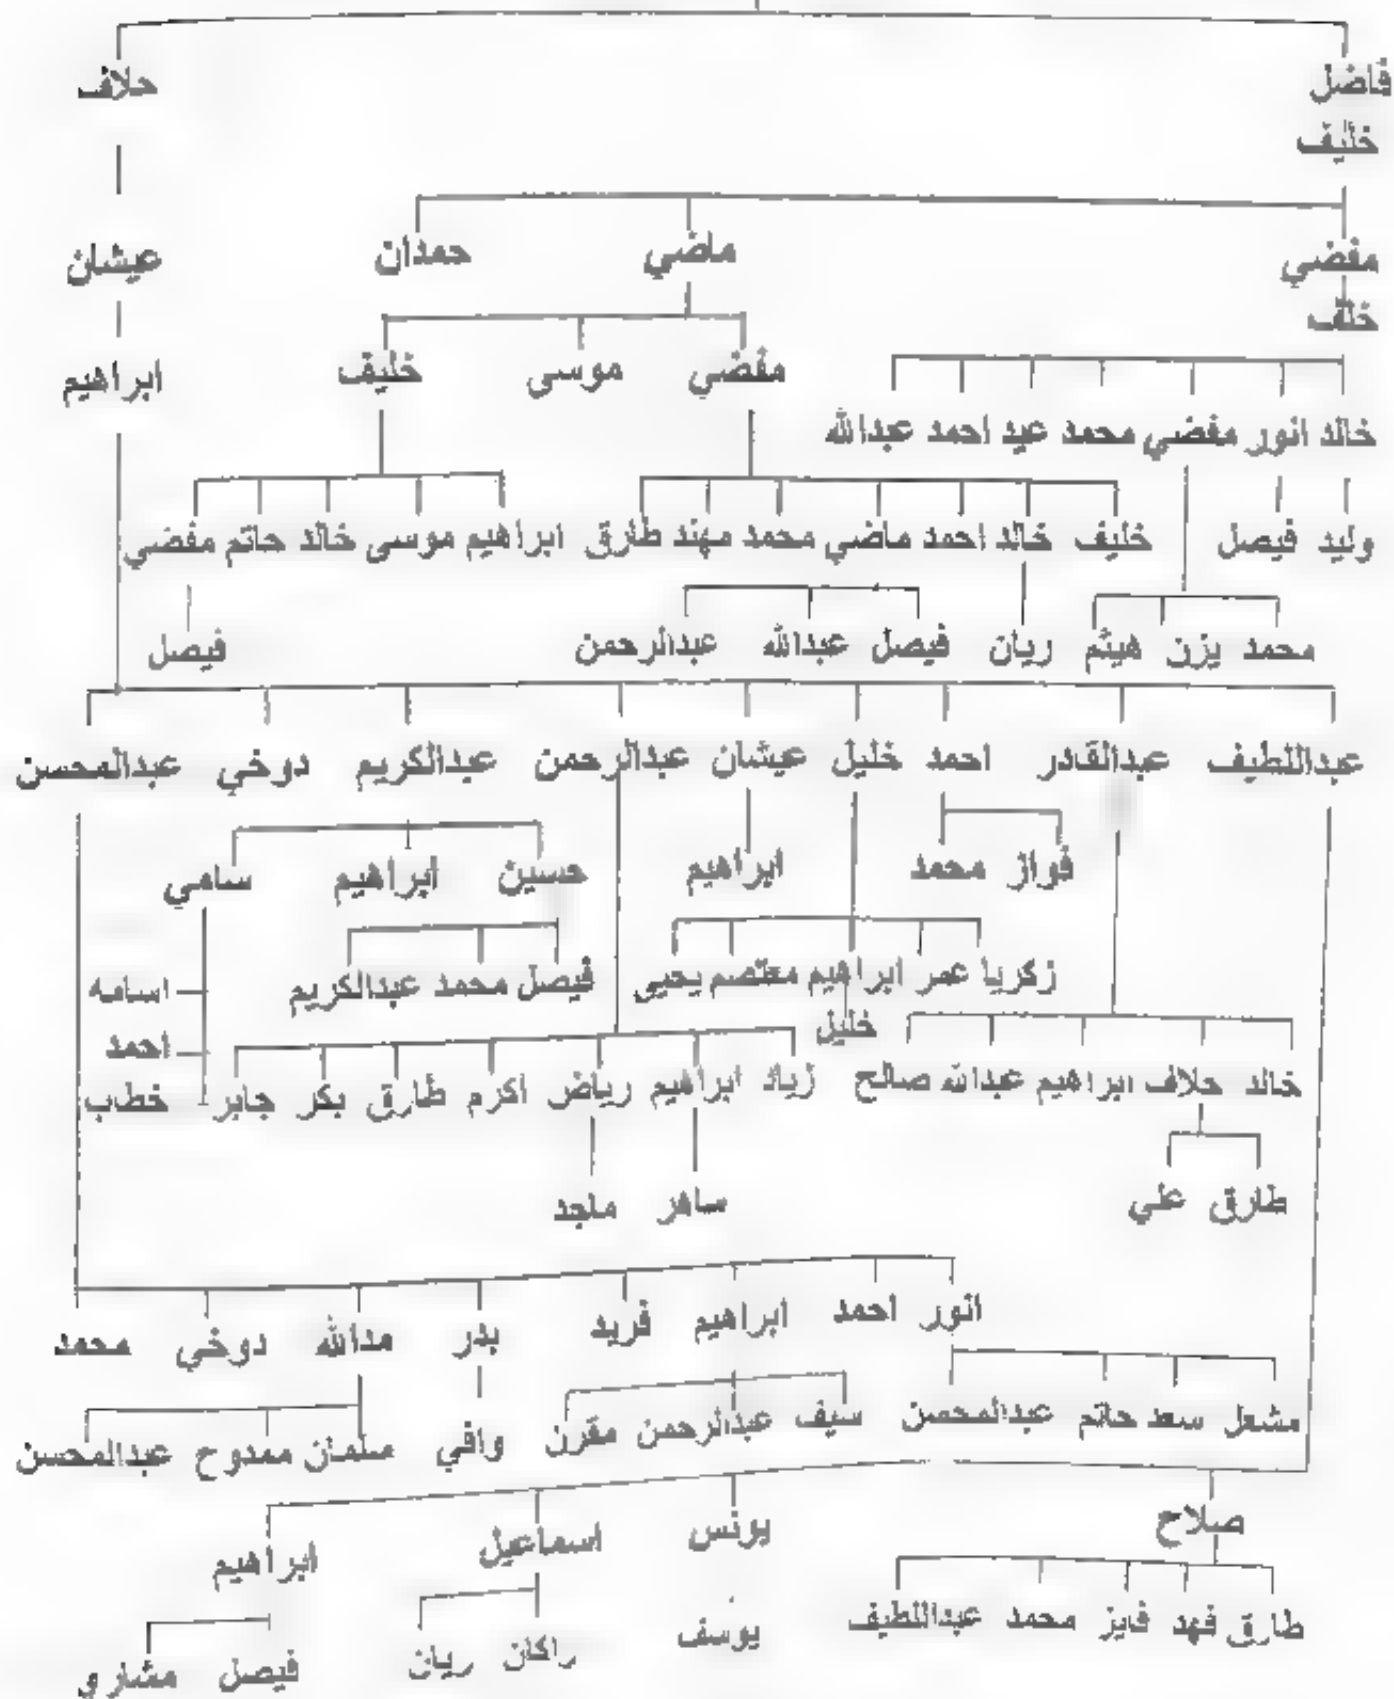 فاضل حلاف
خليف
مفضي ماضي حمدان عيشان
خلف
مفضي موسى خليف ابراهيم
خالد انور مفضي محمد عيد احمد عبدالله
وليد فيصل خليف خالد احمد ماضي محمد مهند طارق ابراهيم موسى خالد حاتم مفضي
محمد يزن هيثم ريان فيصل عبدالله عبدالرحمن فيصل
عبداللطيف عبدالقادر احمد خليل عيشان عبدالرحمن عبدالكريم دوخي عبدالمحسن
فواز محمد ابراهيم حسين ابراهيم سامي
زكريا عمر ابراهيم معتصم يحيى فيصل محمد عبدالكريم اسامه
خليل احمد
خالد حلاف ابراهيم عبدالله صالح زياد ابراهيم رياض اكرم طارق بكر جابر خطاب
طارق علي ساهر ماجد
انور احمد ابراهيم فريد بدر مدالله دوخي محمد
مشعل سعد حاتم عبدالمحسن سيف عبدالرحمن مقرن وافي سلمان ممدوح عبدالمحسن
صلاح يونس اسماعيل ابراهيم
طارق فهد فايز محمد عبداللطيف يوسف راكان ريان فيصل مشاري